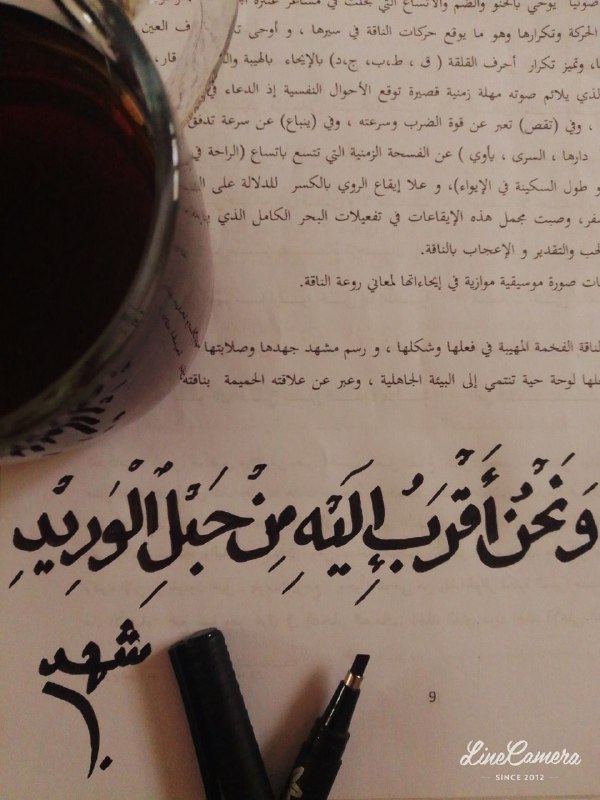 صوتيا يوحي بالحنو والضم والاتساع التي
الحركة وتكرارها وهو ما يوقع حركات الناقة في سيرها ، و أوحى
وتميز تكرار أحرف القلقة ( ق ، ط،ب، ج،د) بالإيحاء بالهيبة
الذي يلائم صوته مهلة زمنية قصيرة توقع الأحوال النفسية إذ الدعاء في
، وفي (تقص) تعبر عن قوة الضرب وسرعته ، وفي (ينباع) عن سرعة تدفق
دارها ، السرى ، يأوي ) عن الفسحة الزمنية التي تتسع باتساع (الراحة في
و طول السكينة في الإيواء)، و علا إيقاع الروي بالكسر للدلالة على
وصبت مجمل هذه الإيقاعات في تفعيلات البحر الكامل الذي
والتقدير و الإعجاب بالناقة.
صورة موسيقية موازية في إيحاءاتها لمعاني روعة الناقة.
الناقة الفخمة المهيبة في فعلها وشكلها ، و رسم مشهد جهدها وصلابتها
لوحة حية تنتمي إلى البيئة الجاهلية ، وعبر عن علاقته الحميمة بناقته
وَنَحْنُ أَقْرَبُ إِلَيْهِ مِنْ حَبْلِ الْوَرِيْدِ
شهد
9
LineCamera
SINCE 2012